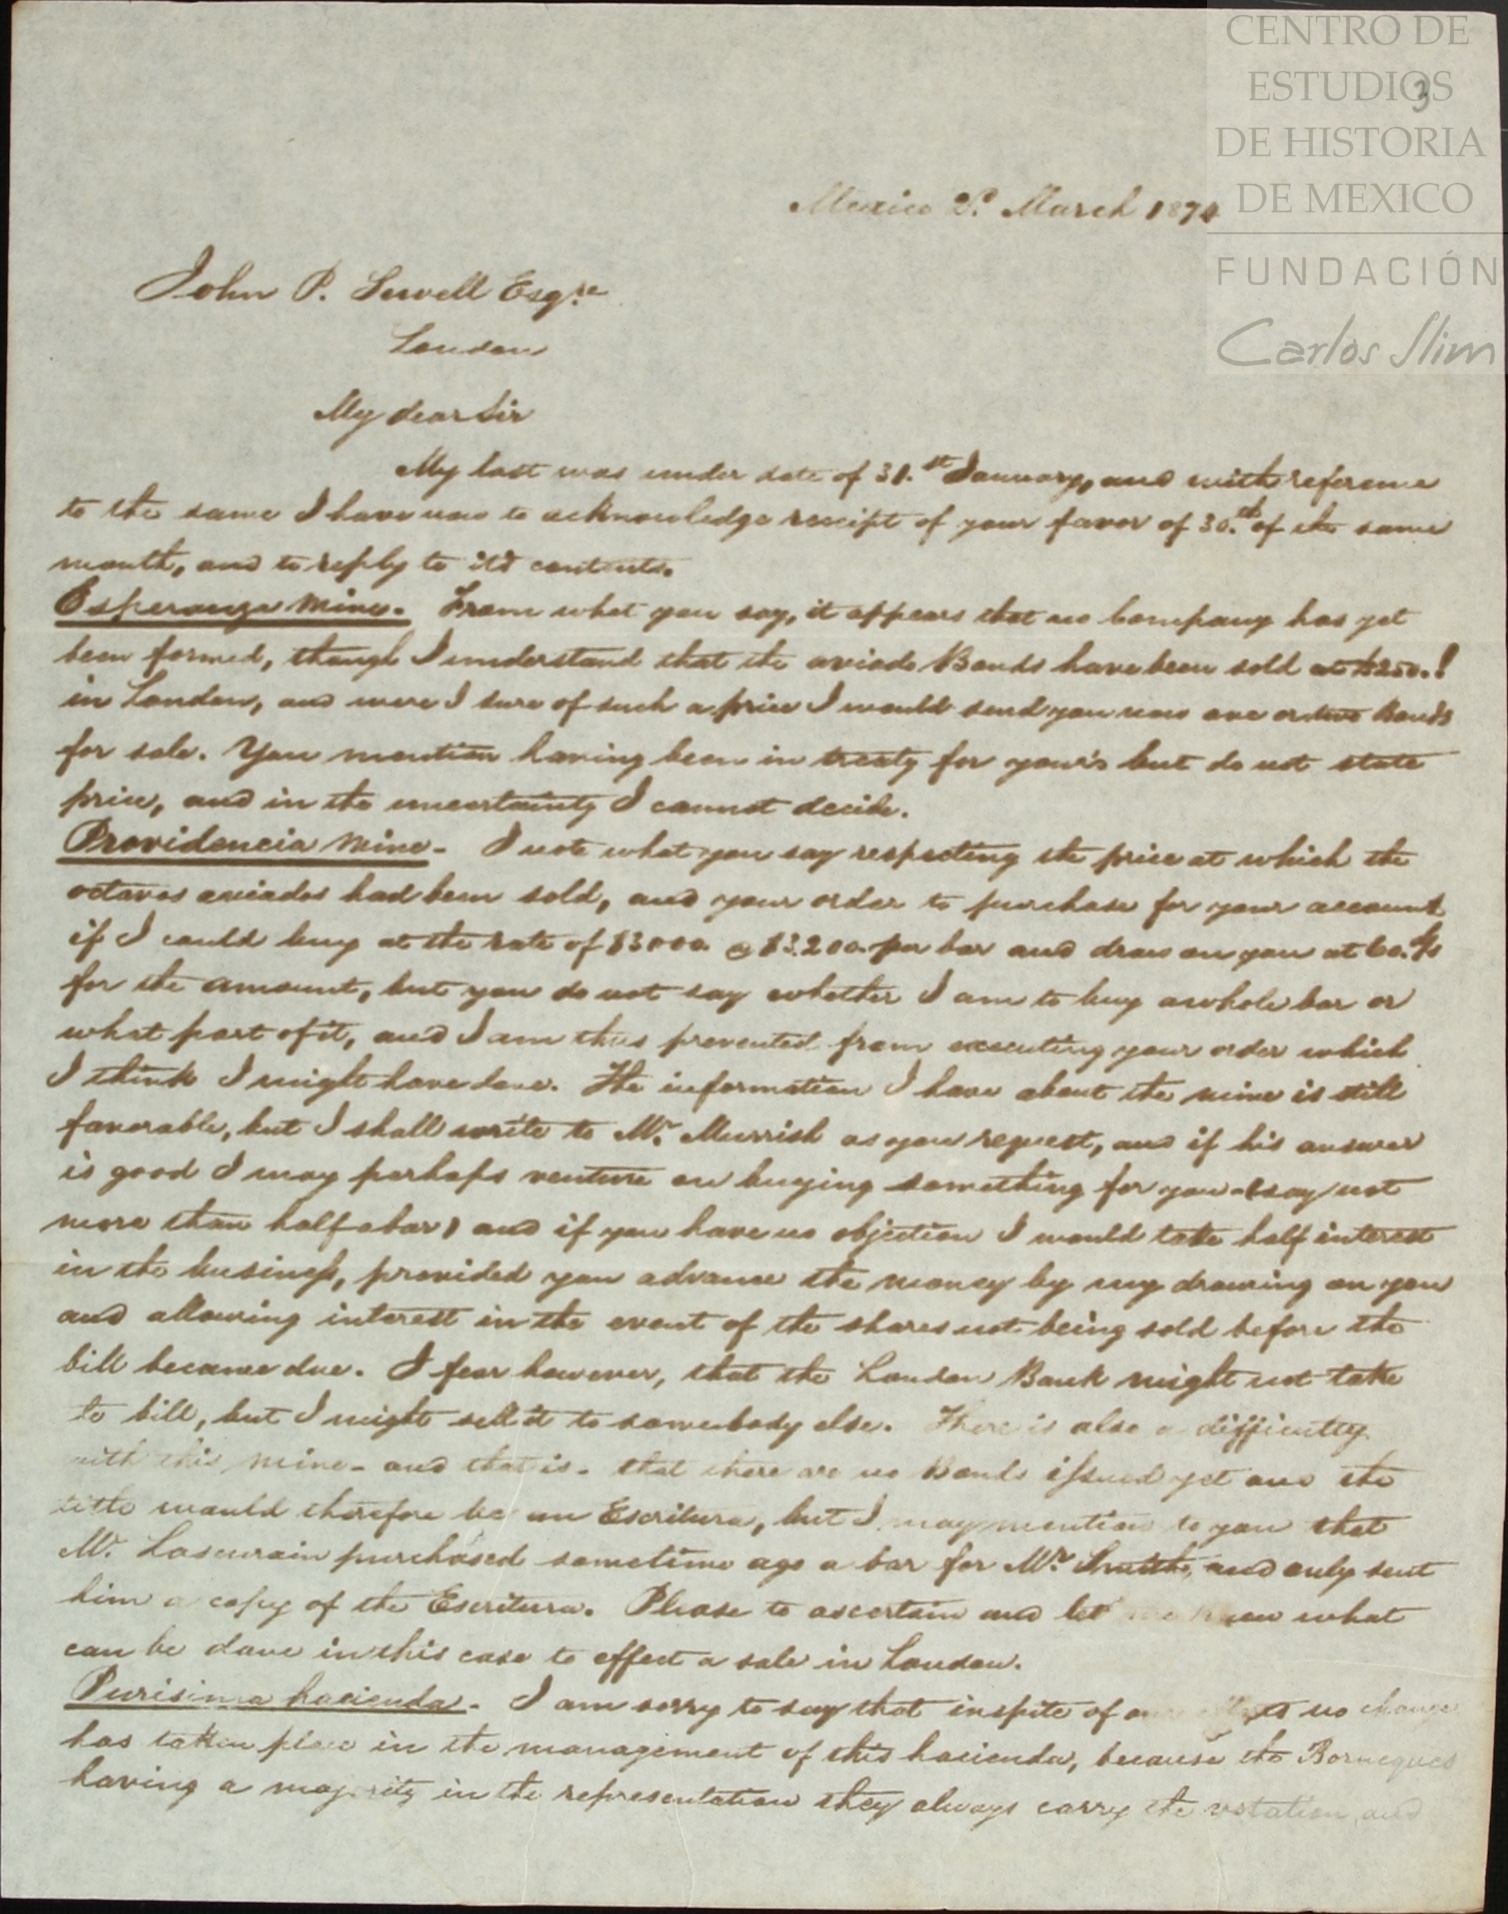 CENTRO DE
ESTUDIOS
DE HISTORIA
DE MEXICO
FUNDACIÓN
Carlos Slim
3
Mexico 2d March 1874
John P. Sewell Esqre
London
My dear Sir
My last was under date of 31.st January, and with reference
to the same I have now to acknowledge receipt of your favor of 30.th of the same
month, and to reply to it's contents.
Esperanza Mine. From what you say, it appears that no Company has yet
been formed, though I understand that the aviado Bonds have been sold at £250.!
in London, and were I sure of such a price I would send you now one or two Bonds
for sale. You mention having been in treaty for your's but do not state
price, and in the uncertainty I cannot decide.
Providencia Mine - I note what you say respecting the price at which the
octavos aviados had been sold, and your order to purchase for your account
if I could buy at the rate of $3000. @ $3.200. per bar and draw on you at 60. d/s
for the amount, but you do not say whether I am to buy a whole bar or
what part of it, and I am thus prevented from executing your order which
I think I might have done. The information I have about the mine is still
favorable, but I shall write to Mr. Murrish as you request, and if his answer
is good I may perhaps venture on buying something for you (say not
more than half a bar) and if you have no objection I would take half interest
in the business, provided you advance the money by my drawing on you
and allowing interest in the event of the shares not being sold before the
bill became due. I fear however, that the London Bank might not take
the bill, but I might sell it to somebody else. There is also a difficulty
with this mine - and that is - that there are no Bonds issued yet and the
title would therefore be an Escritura, but I may mention to you that
Mr. Lascurain purchased sometime ago a bar for Mr. Smith, and only sent
him a copy of the Escritura. Please to ascertain and let me know what
can be done in this case to effect a sale in London.
Purisima hacienda - I am sorry to say that inspite of our efforts no change
has taken place in the management of this hacienda, because the Borneques
having a majority in the representation they always carry the votation, and